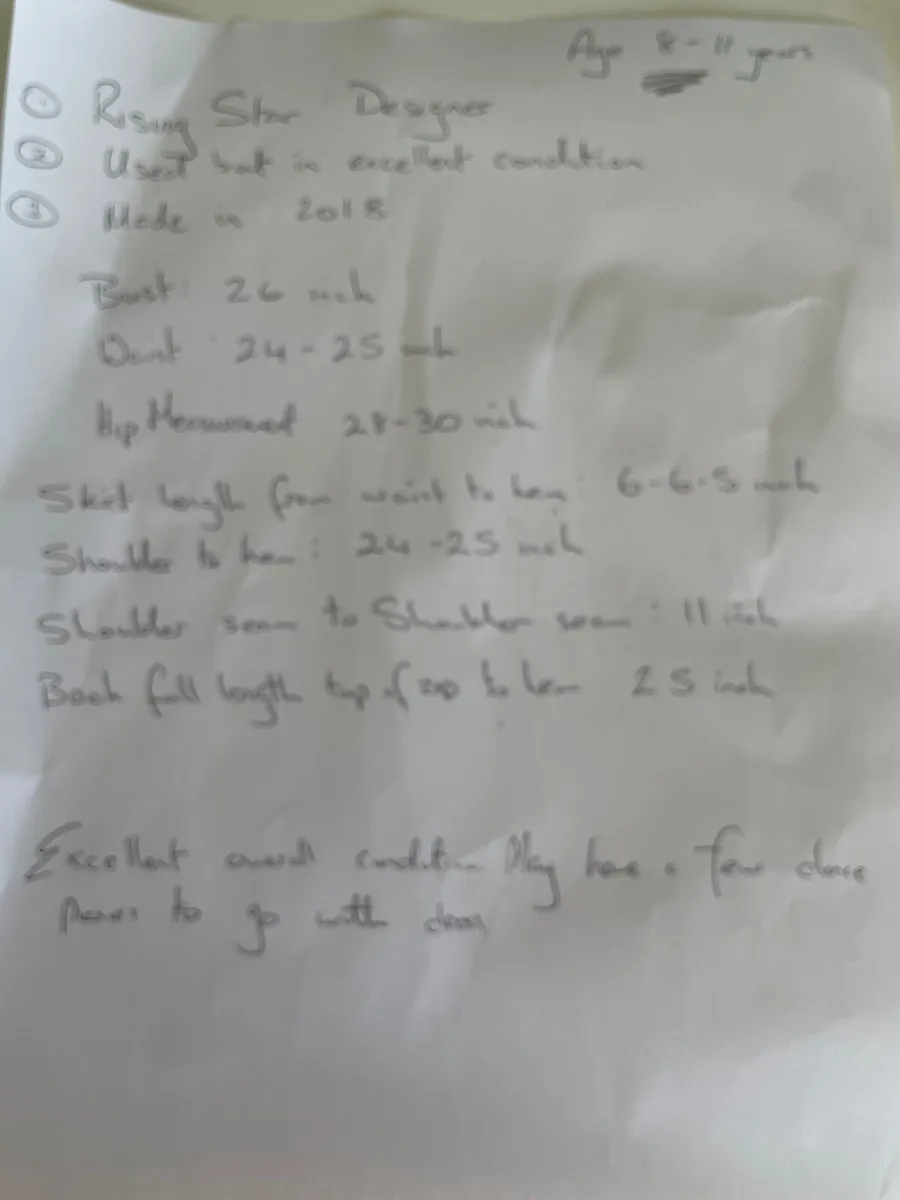 Age 8-11 years
① Rising Star Designer
② Used but in excellent condition
③ Made in 2018
Bust: 26 inch
Waist: 24-25 inch
Hip Measurement 28-30 inch
Skirt length from waist to hem: 6-6.5 inch
Shoulder to hem: 24-25 inch
Shoulder seam to Shoulder seam: 11 inch
Back full length top of zip to hem 25 inch
Excellent overall condition May have a few dance
to go with dress